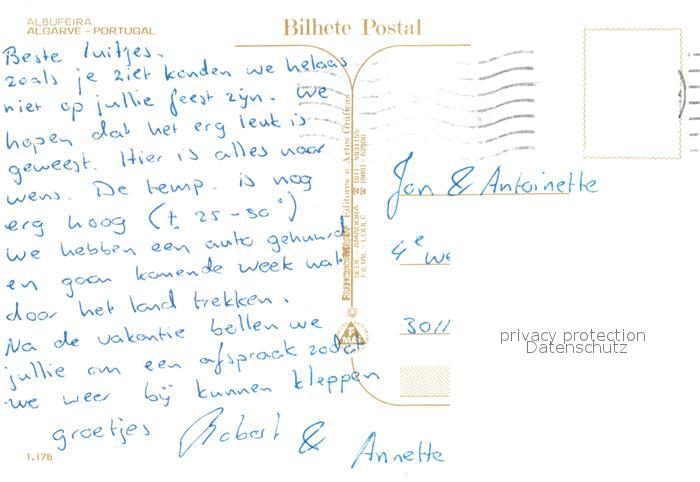 ALBUFEIRA
ALGARVE - PORTUGAL
Bilhete Postal
Beste luitjes.
zoals je ziet konden we helaas
niet op jullie feest zijn. We
hopen dat het erg leuk is
geweest. Hier is alles naar
wens. De temp. is nog
erg hoog (± 25-30°)
we hebben een auto gehuurd
en gaan komende week wat
door het land trekken.
Na de vakantie bellen we
jullie om een afspraak zodat
we weer bij kunnen kleppen
groetjes Robert &
Annette
1.176
Editores e Artes Gráficas
SEDE - AMADORA
FILIAL - LOULÉ
©
Jan & Antoinette
4e we
3011
privacy protection
Datenschutz